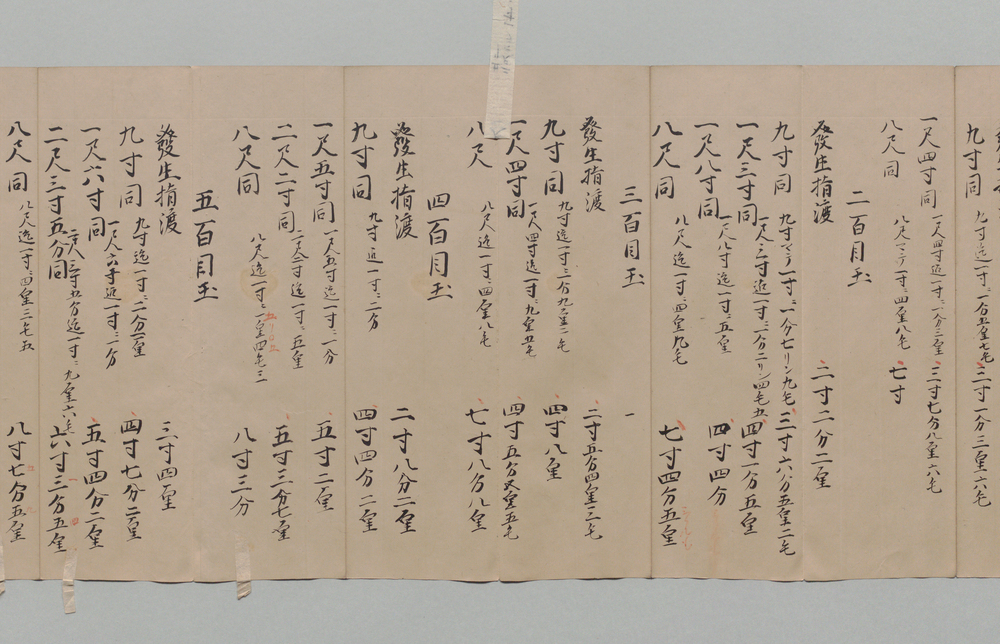 九寸同 九寸迄一寸ニ一分五厘七毛 三寸一分三厘六毛
一尺四寸同 一尺四寸迄一寸ニ一分三厘 三寸七分八厘六毛
八尺同 八尺マテ一寸ニ四厘八毛 七寸
二百目玉
發生指渡 二寸二分二厘
九寸同 九寸マテ一寸ニ一分七リン九毛 三寸六分五厘二毛
一尺三寸同 一尺三寸迄一寸ニ一分二リン四毛五 四寸一分五厘
一尺八寸同 一尺八寸迄一寸ニ五厘 四寸四分
八尺同 八尺迄一寸ニ四厘九毛 七寸四分五厘
三百目玉 一
發生指渡 二寸五分四厘三毛
九寸同 九寸迄一寸ニ二分九厘二毛 四寸八厘
一尺四寸同 一尺四寸迄一寸ニ九厘五毛 四寸五分五厘五毛
八尺 八尺迄一寸ニ四厘八毛 七寸八分八厘
四百目玉
發生指渡 二寸八分二厘
九寸同 九寸迄一寸ニ二分 四寸四分二厘
一尺五寸同 一尺五寸迄一寸ニ一分 五寸二厘
二尺二寸同 二尺二寸迄一寸ニ五厘 五寸三分七厘
八尺同 八尺迄一寸ニ 八寸三分
五百目玉
發生指渡 三寸四厘
九寸同 九寸迄一寸ニ二分一厘 四寸七分二厘
一尺六寸同 一尺六寸迄一寸ニ一分 五寸四分二厘
二尺三寸五分同 二尺三寸五分迄一寸ニ九厘六毛 六寸三分五厘
八尺同 八尺迄一寸ニ四厘三毛五 八寸七分五厘